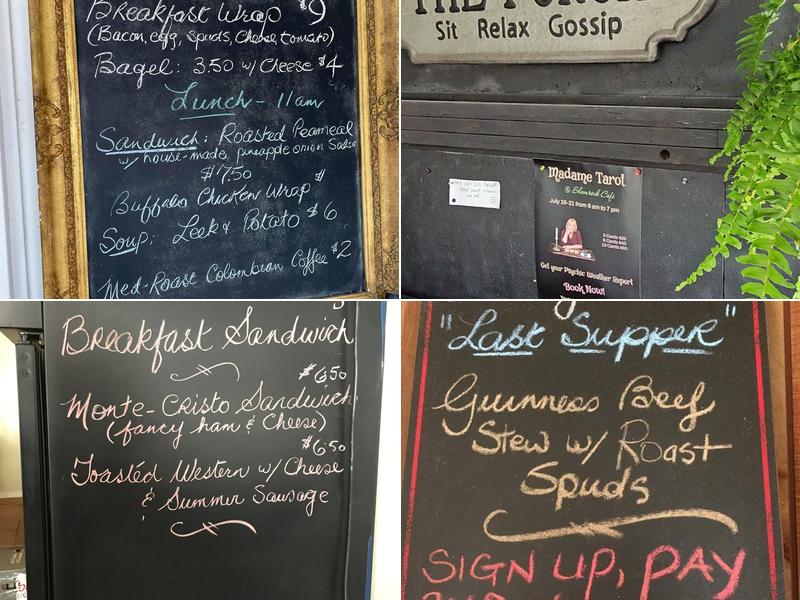 Breakfast Wrap $9
(Bacon, egg, Spuds, Cheese, tomato)
Bagel: 3.50 w/ Cheese $4
Lunch - 11am
Sandwich: Roasted Peameal
w/ house-made pineapple onion Salsa
$17.50
Buffalo Chicken Wrap $
Soup: Leek & Potato $6
Med-Roast Colombian Coffee $2
Sit Relax Gossip
Madame Tarot
@ Shamrock Café
July 16-21 from 9 am to 7 pm
3 Cards $20
6 Cards $40
13 Cards $60
Get your Psychic Weather Report
Book Now!
Breakfast Sandwich
$6.50
Monte-Cristo Sandwich
(fancy ham & Cheese)
$6.50
Toasted Western w/ Cheese
& Summer Sausage
"Last Supper"
Guinness Beef
Stew w/ Roast
Spuds
SIGN UP, PAY